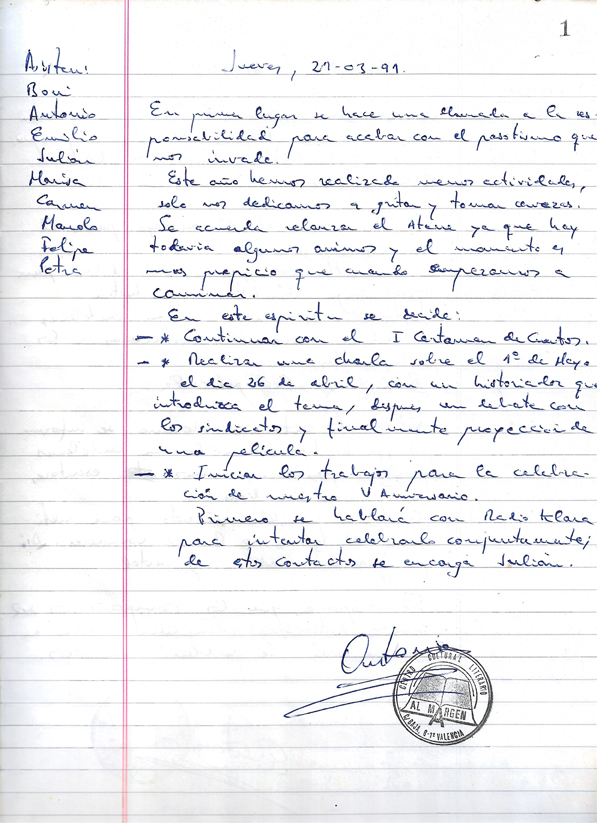 1
Jueves, 21-03-91.
Asisten:
Boni
Antonio
Emilio
Julián
Marisa
Carmen
Manolo
Felipe
Petra
En primer lugar se hace una llamada a la res-
ponsabilidad para acabar con el pasotismo que
nos invade.
Este año hemos realizado menos actividades,
solo nos dedicamos a gritar y tomar cervezas.
Se acuerda relanzar el Ateneo ya que hay
todavia algunos animos y el momento es
mas propicio que cuando empezamos a
caminar.
En este espiritu se decide:
- * Continuar con el I Certamen de Cuentos.
- * Realizar una charla sobre el 1º de Mayo
el dia 26 de abril, con un historiador que
introduzca el tema, despues un debate con
los sindicatos y finalmente proyección de
una película.
- * Iniciar los trabajos para la celebra-
ción de nuestro V Aniversario.
Primero se hablará con Radio Klara
para intentar celebrarlo conjuntamente,
de estos contactos se encarga Julián.
Antonio
CENTRO CULTURAL LITERARIO
AL MARGEN
C/ BAJA, 8-1º VALENCIA